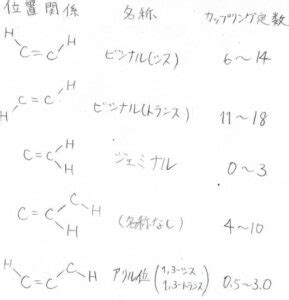 位置関係 名称 カップリング定数
H H
C=C ビシナル(シス) 6〜14
C=C H
H ビシナル(トランス) 11〜18
H
C=C ジェミナル 0〜3
H
C-H
C=C (名称なし) 4〜10
H
H C-H 1,3-シス
C=C アリル位 0.5〜3.0
1,3-トランス